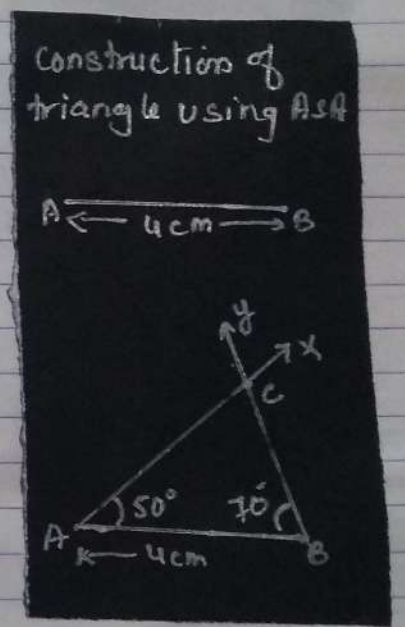 construction of
triangle using ASA
A B
4cm
y
x
C
50° 70°
A B
4cm